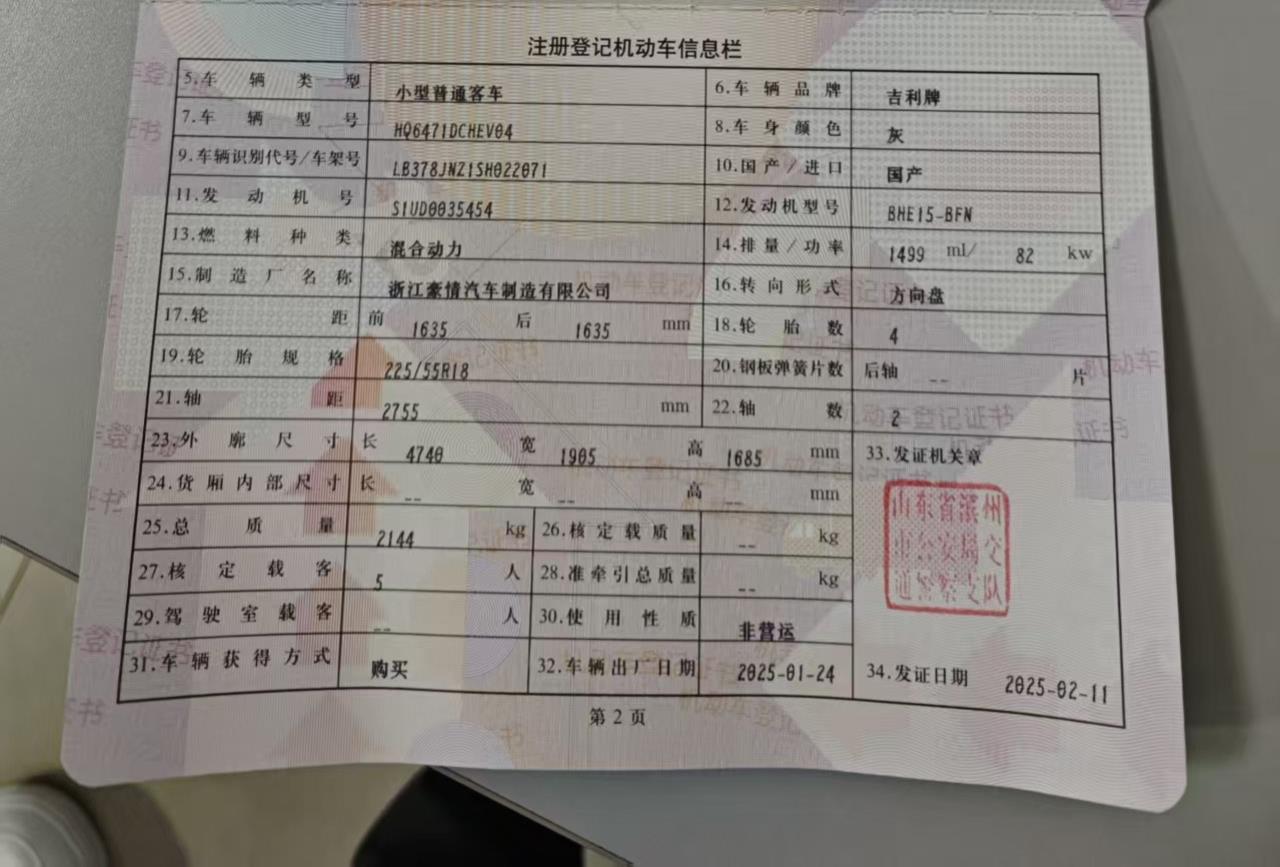 注册登记机动车信息栏
5.车辆类型 小型普通客车 6.车辆品牌 吉利牌
7.车辆型号 HQ6471DCHEV04 8.车身颜色 灰
9.车辆识别代号/车架号 LB378JNZ1SH022071 10.国产/进口 国产
11.发动机号 S1UD0035454 12.发动机型号 BHE15-BFN
13.燃料种类 混合动力 14.排量/功率 1499 ml/ 82 kw
15.制造厂名称 浙江豪情汽车制造有限公司 16.转向形式 方向盘
17.轮距 前 1635 后 1635 mm 18.轮胎数 4
19.轮胎规格 225/55R18 20.钢板弹簧片数 后轴 -- 片
21.轴距 2755 mm 22.轴数 2
23.外廓尺寸 长 4740 宽 1905 高 1685 mm 33.发证机关章
24.货厢内部尺寸 长 -- 宽 -- 高 -- mm
山东省滨州
市公安局交
通警察支队
25.总质量 2144 kg 26.核定载质量 -- kg
27.核定载客 5 人 28.准牵引总质量 -- kg
29.驾驶室载客 -- 人 30.使用性质 非营运
31.车辆获得方式 购买 32.车辆出厂日期 2025-01-24 34.发证日期 2025-02-11
第2页